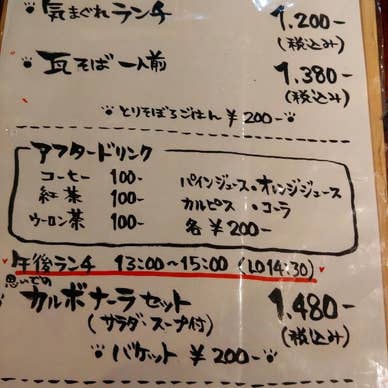 気まぐれランチ 1,200-
(税込み)
瓦そば 一人前 1,380-
(税込み)
とりそぼろごはん ¥200-
アフタードリンク
コーヒー 100-
紅茶 100-
ウーロン茶 100-
パインジュース・オレンジジュース
カルピス・コーラ
各¥200-
午後ランチ 13:00~15:00 (LO14:30)
思いでの
カルボナーラセット 1,480-
(サラダ・スープ付) (税込み)
バケット ¥200-